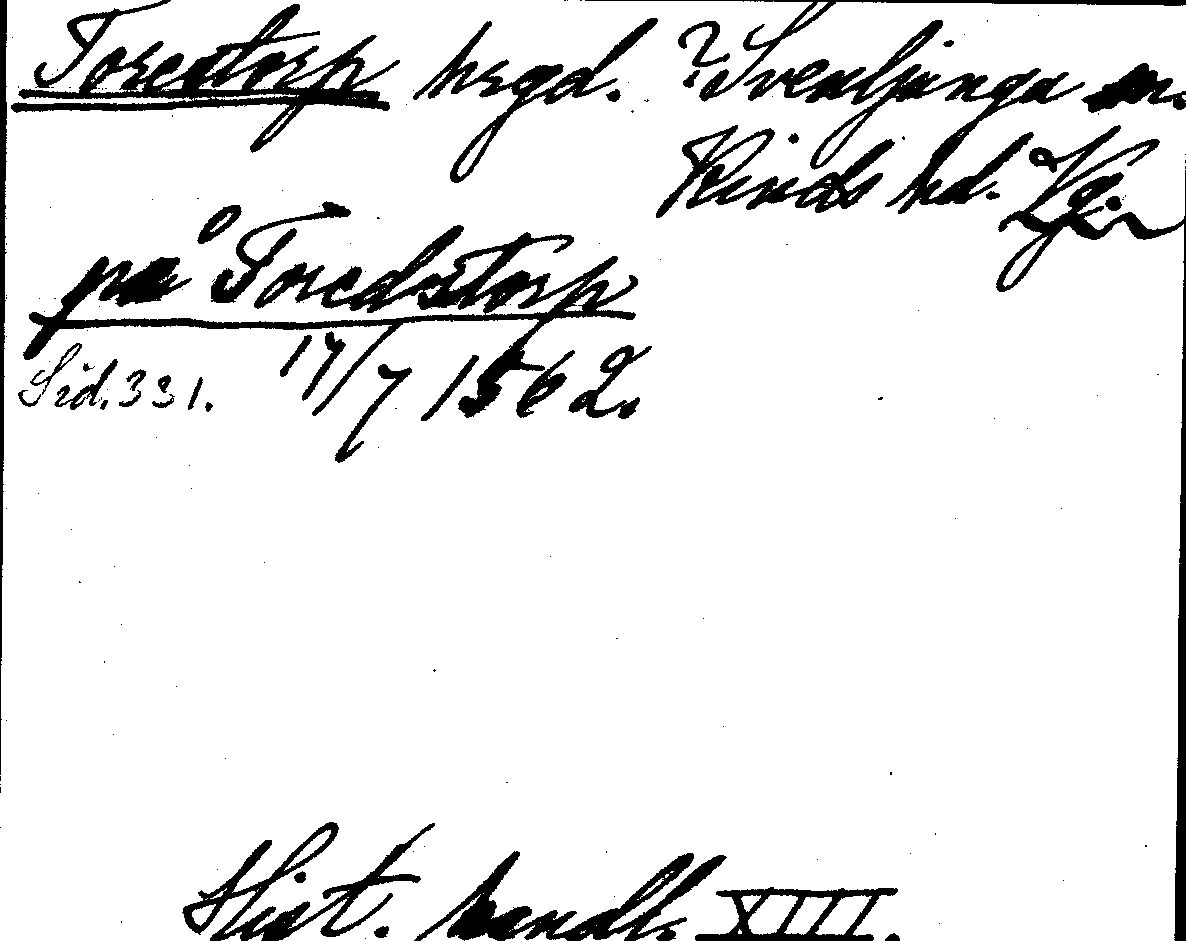 Torestorp hrgd. ? Svenljunga sn.
Kinds hd. Vg.
på Toredstorp
Sid. 331. 17/7 1562.
Hist. handl. XIII.